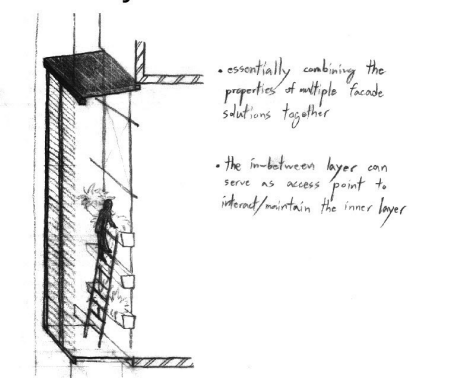 • essentially combining the
properties of multiple facade
solutions together
• the in-between layer can
serve as access point to
interact/maintain the inner layer